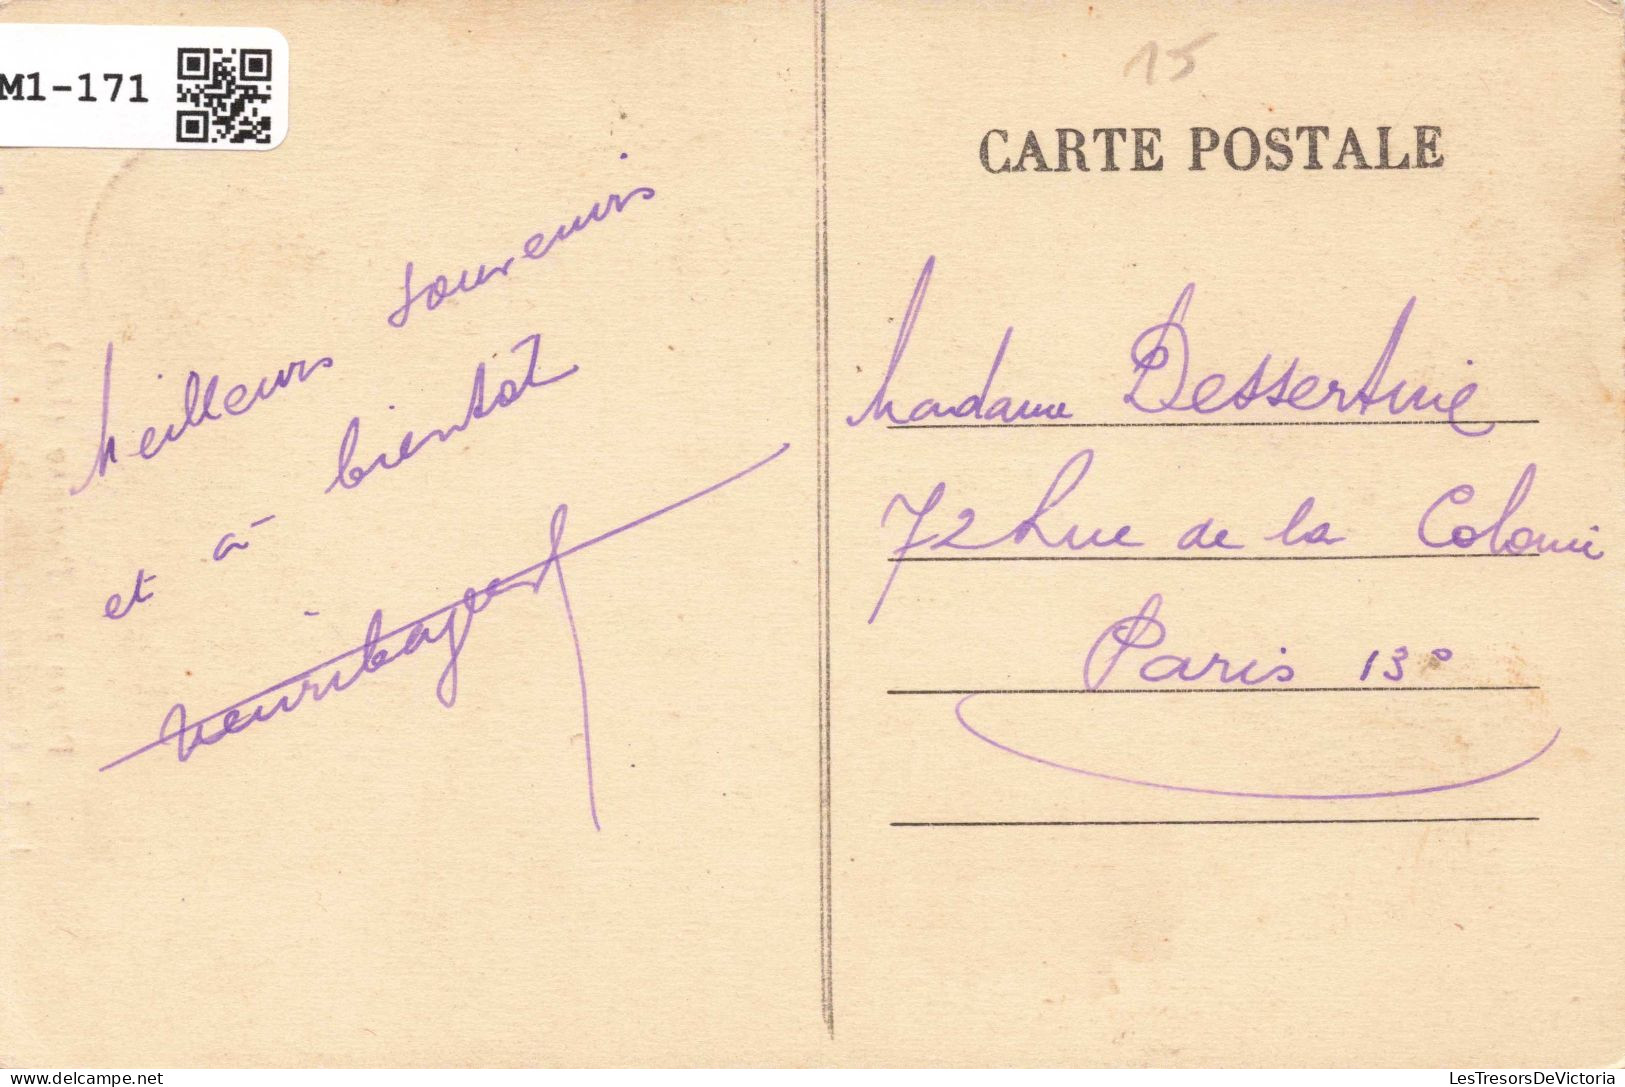 M1-171
15
CARTE POSTALE
Meilleurs souvenirs
et à bientot
Madame Dessertine
72 Rue de la Colonie
Paris 13e
LesTresorsDeVictoria
delcampe.net